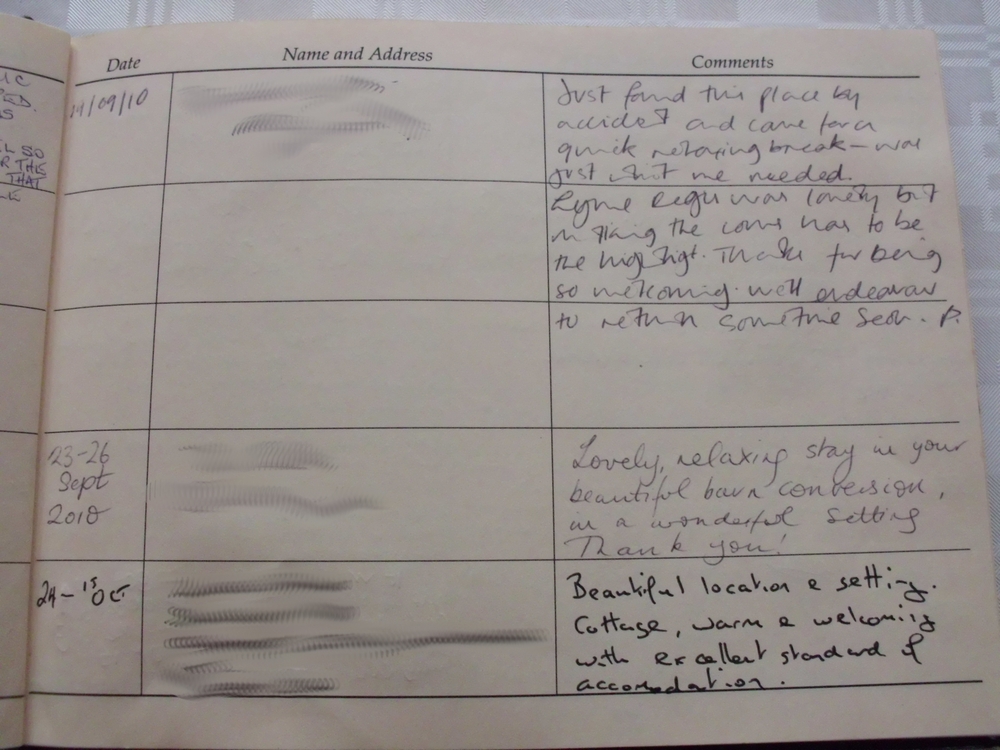 Date Name and Address Comments
/09/10
Just found this place by
accident and came for a
quick relaxing break – was
just what we needed.
Lyme Regis was lovely but
milking the cows has to be
the highlight. Thanks for being
so welcoming. we'll endeavour
to return sometime soon. P.
23-26
Sept
2010
Lovely, relaxing stay in your
beautiful barn conversion,
in a wonderful setting
Thank you!
24 – 1st Oct
Beautiful location & setting.
Cottage, warm & welcoming
with excellent standard of
accomodation.
UC
S
L SO
R THE
THAT
LE